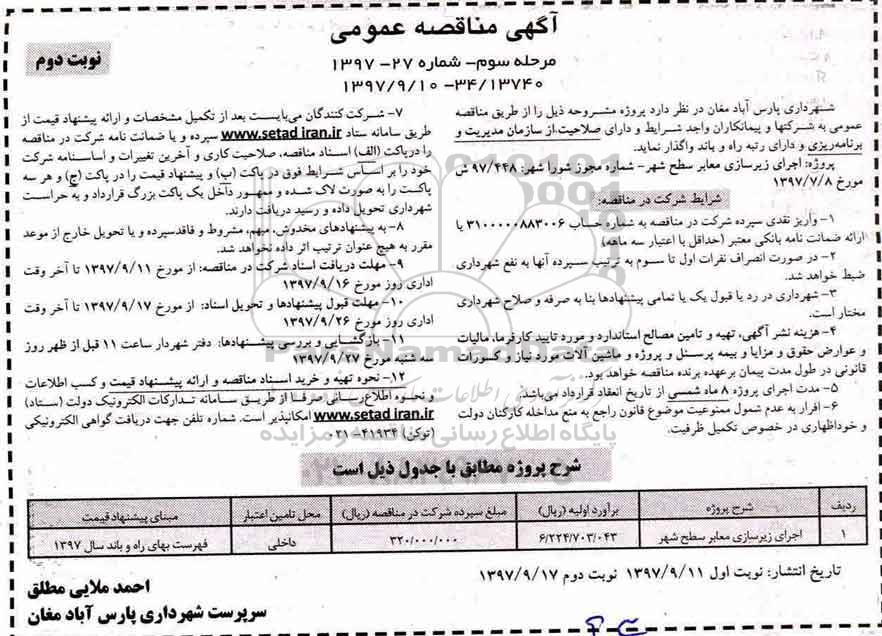 آگهی مناقصه عمومی
نوبت دوم
مرحله سوم- شماره ۲۷- ۱۳۹۷
۳۴/۱۳۷۴۰- ۱۳۹۷/۹/۱۰
شهرداری پارس آباد مغان در نظر دارد پروژه مشروحه ذیل را از طریق مناقصه
عمومی به شرکتها و پیمانکاران واجد شرایط و دارای صلاحیت از سازمان مدیریت و
برنامه‌ریزی و دارای رتبه راه و باند واگذار نماید.
پروژه: اجرای زیرسازی معابر سطح شهر- شماره مجوز شورا شهر: ۹۷/۴۴۸ ش
مورخ ۱۳۹۷/۷/۸
شرایط شرکت در مناقصه:
۱- واریز نقدی سپرده شرکت در مناقصه به شماره حساب ۳۱۰۰۰۰۰۸۸۳۰۰۶ یا
ارائه ضمانت نامه بانکی معتبر (حداقل با اعتبار سه ماهه)
۲- در صورت انصراف نفرات اول تا سوم به ترتیب سپرده آنها به نفع شهرداری
ضبط خواهد شد.
۳- شهرداری در رد یا قبول یک یا تمامی پیشنهادها بنا به صرفه و صلاح شهرداری
مختار است.
۴- هزینه نشر آگهی، تهیه و تامین مصالح استاندارد و مورد تایید کارفرما، مالیات
و عوارض حقوق و مزایا و بیمه پرسنل و پروژه و ماشین آلات مورد نیاز و کسورات
قانونی در طول مدت پیمان برعهده برنده مناقصه خواهد بود.
۵- مدت اجرای پروژه ۸ ماه شمسی از تاریخ انعقاد قرارداد می‌باشد.
۶- اقرار به عدم شمول ممنوعیت موضوع قانون راجع به منع مداخله کارکنان دولت
و خوداظهاری در خصوص تکمیل ظرفیت.
۷- شرکت کنندگان می‌بایست بعد از تکمیل مشخصات و ارائه پیشنهاد قیمت از
طریق سامانه ستاد www.setad iran.ir سپرده و یا ضمانت نامه شرکت در مناقصه
را در پاکت (الف) اسناد مناقصه، صلاحیت کاری و آخرین تغییرات و اساسنامه شرکت
خود را بر اساس شرایط فوق در پاکت (ب) و پیشنهاد قیمت را در پاکت (ج) و هر سه
پاکت را به صورت لاک شده و ممهور داخل یک پاکت بزرگ قرارداد و به حراست
شهرداری تحویل داده و رسید دریافت دارند.
۸- به پیشنهادهای مخدوش، مبهم، مشروط و فاقد سپرده و یا تحویل خارج از موعد
مقرر به هیچ عنوان ترتیب اثر داده نخواهد شد.
۹- مهلت دریافت اسناد شرکت در مناقصه: از مورخ ۱۳۹۷/۹/۱۱ تا آخر وقت
اداری روز مورخ ۱۳۹۷/۹/۱۶
۱۰- مهلت قبول پیشنهادها و تحویل اسناد: از مورخ ۱۳۹۷/۹/۱۷ تا آخر وقت
اداری روز مورخ ۱۳۹۷/۹/۲۶
۱۱- بازگشایی و بررسی پیشنهادها: دفتر شهردار ساعت ۱۱ قبل از ظهر روز
سه شنبه مورخ ۱۳۹۷/۹/۲۷
۱۲- نحوه تهیه و خرید اسناد مناقصه و ارائه پیشنهاد قیمت و کسب اطلاعات
و نحوه اطلاع‌رسانی صرفا از طریق سامانه تدارکات الکترونیک دولت (ستاد)
www.setad iran.ir امکانپذیر است. شماره تلفن جهت دریافت گواهی الکترونیکی
(توکن) ۴۱۹۳۴- ۰۲۱
پایگاه اطلاع رسانی مناقصه و مزایده
شرح پروژه مطابق با جدول ذیل است
ردیف شرح پروژه برآورد اولیه (ریال) مبلغ سپرده شرکت در مناقصه (ریال) محل تامین اعتبار مبنای پیشنهاد قیمت
۱ اجرای زیرسازی معابر سطح شهر ۶/۲۲۴/۷۰۳/۰۴۳ ۳۲۰/۰۰۰/۰۰۰ داخلی فهرست بهای راه و باند سال ۱۳۹۷
تاریخ انتشار: نوبت اول ۱۳۹۷/۹/۱۱ نوبت دوم ۱۳۹۷/۹/۱۷
احمد ملایی مطلق
سرپرست شهرداری پارس آباد مغان